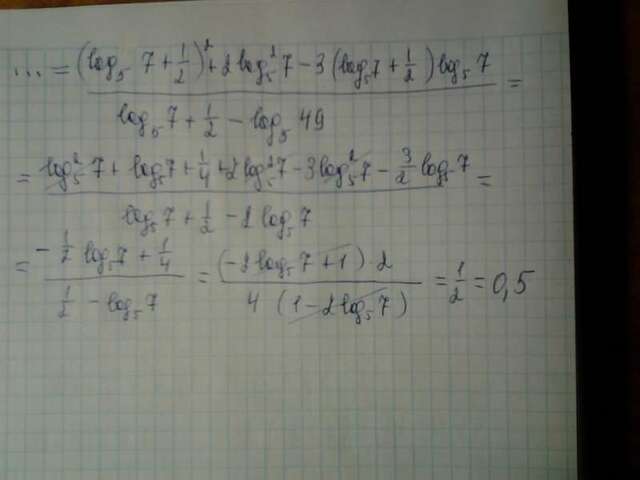 ... = (log₅ 7 + 1/2)² + 2 log₅² 7 - 3 (log₅ 7 + 1/2) log₅ 7 =
log₅ 7 + 1/2 - log₅ 49
= log₅² 7 + log₅ 7 + 1/4 + 2 log₅² 7 - 3 log₅² 7 - 3/2 log₅ 7 =
log₅ 7 + 1/2 - 2 log₅ 7
= - 1/2 log₅ 7 + 1/4 = (-2 log₅ 7 + 1) 2 = 1/2 = 0,5
1/2 - log₅ 7 4 (1 - 2 log₅ 7)